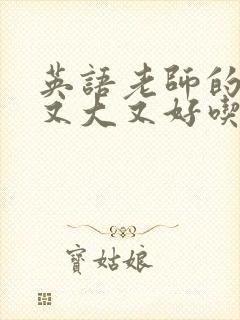 英語老師的
又大又好喫
寶姑娘